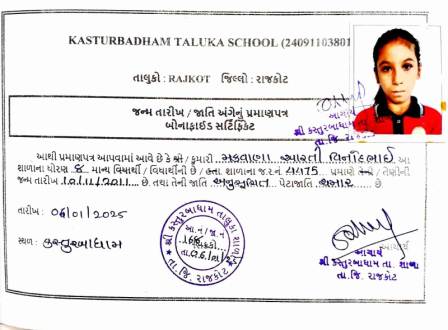 KASTURBADHAM TALUKA SCHOOL (24091103801
તાલુકો : RAJKOT જિલ્લો : રાજકોટ
જન્મ તારીખ / જાતિ અંગેનું પ્રમાણપત્ર
બોનાફાઈડ સર્ટિફિકેટ
આચાર્ય
શ્રી કસ્તુરબાધામ તા. શાળા
તા.જિ. રાજકોટ
આથી પ્રમાણપત્ર આપવામાં આવે છે કે શ્રી / કુમારી. મકવાણા આરતી વિનોદભાઈ આ
શાળાના ધોરણ 8 માન્ય વિદ્યાર્થી / વિદ્યાર્થીની છે / હતા. શાળાના જ.ર.નં ૫૫75 પ્રમાણે તેની / તેણીની
જન્મ તારીખ 10/11/2011 છે. તથા તેની જાતિ અનુસુચિત પેટાજાતિ ચમાર છે.
તારીખ : 06/01/2025
સ્થળ : કસ્તુરબાધામ
શ્રી કસ્તુરબાધામ તાલુકા શાળા
તા.જિ. રાજકોટ
આચાર્ય
આચાર્ય
શ્રી કસ્તુરબાધામ તા. શાળા
તા.જિ. રાજકોટ